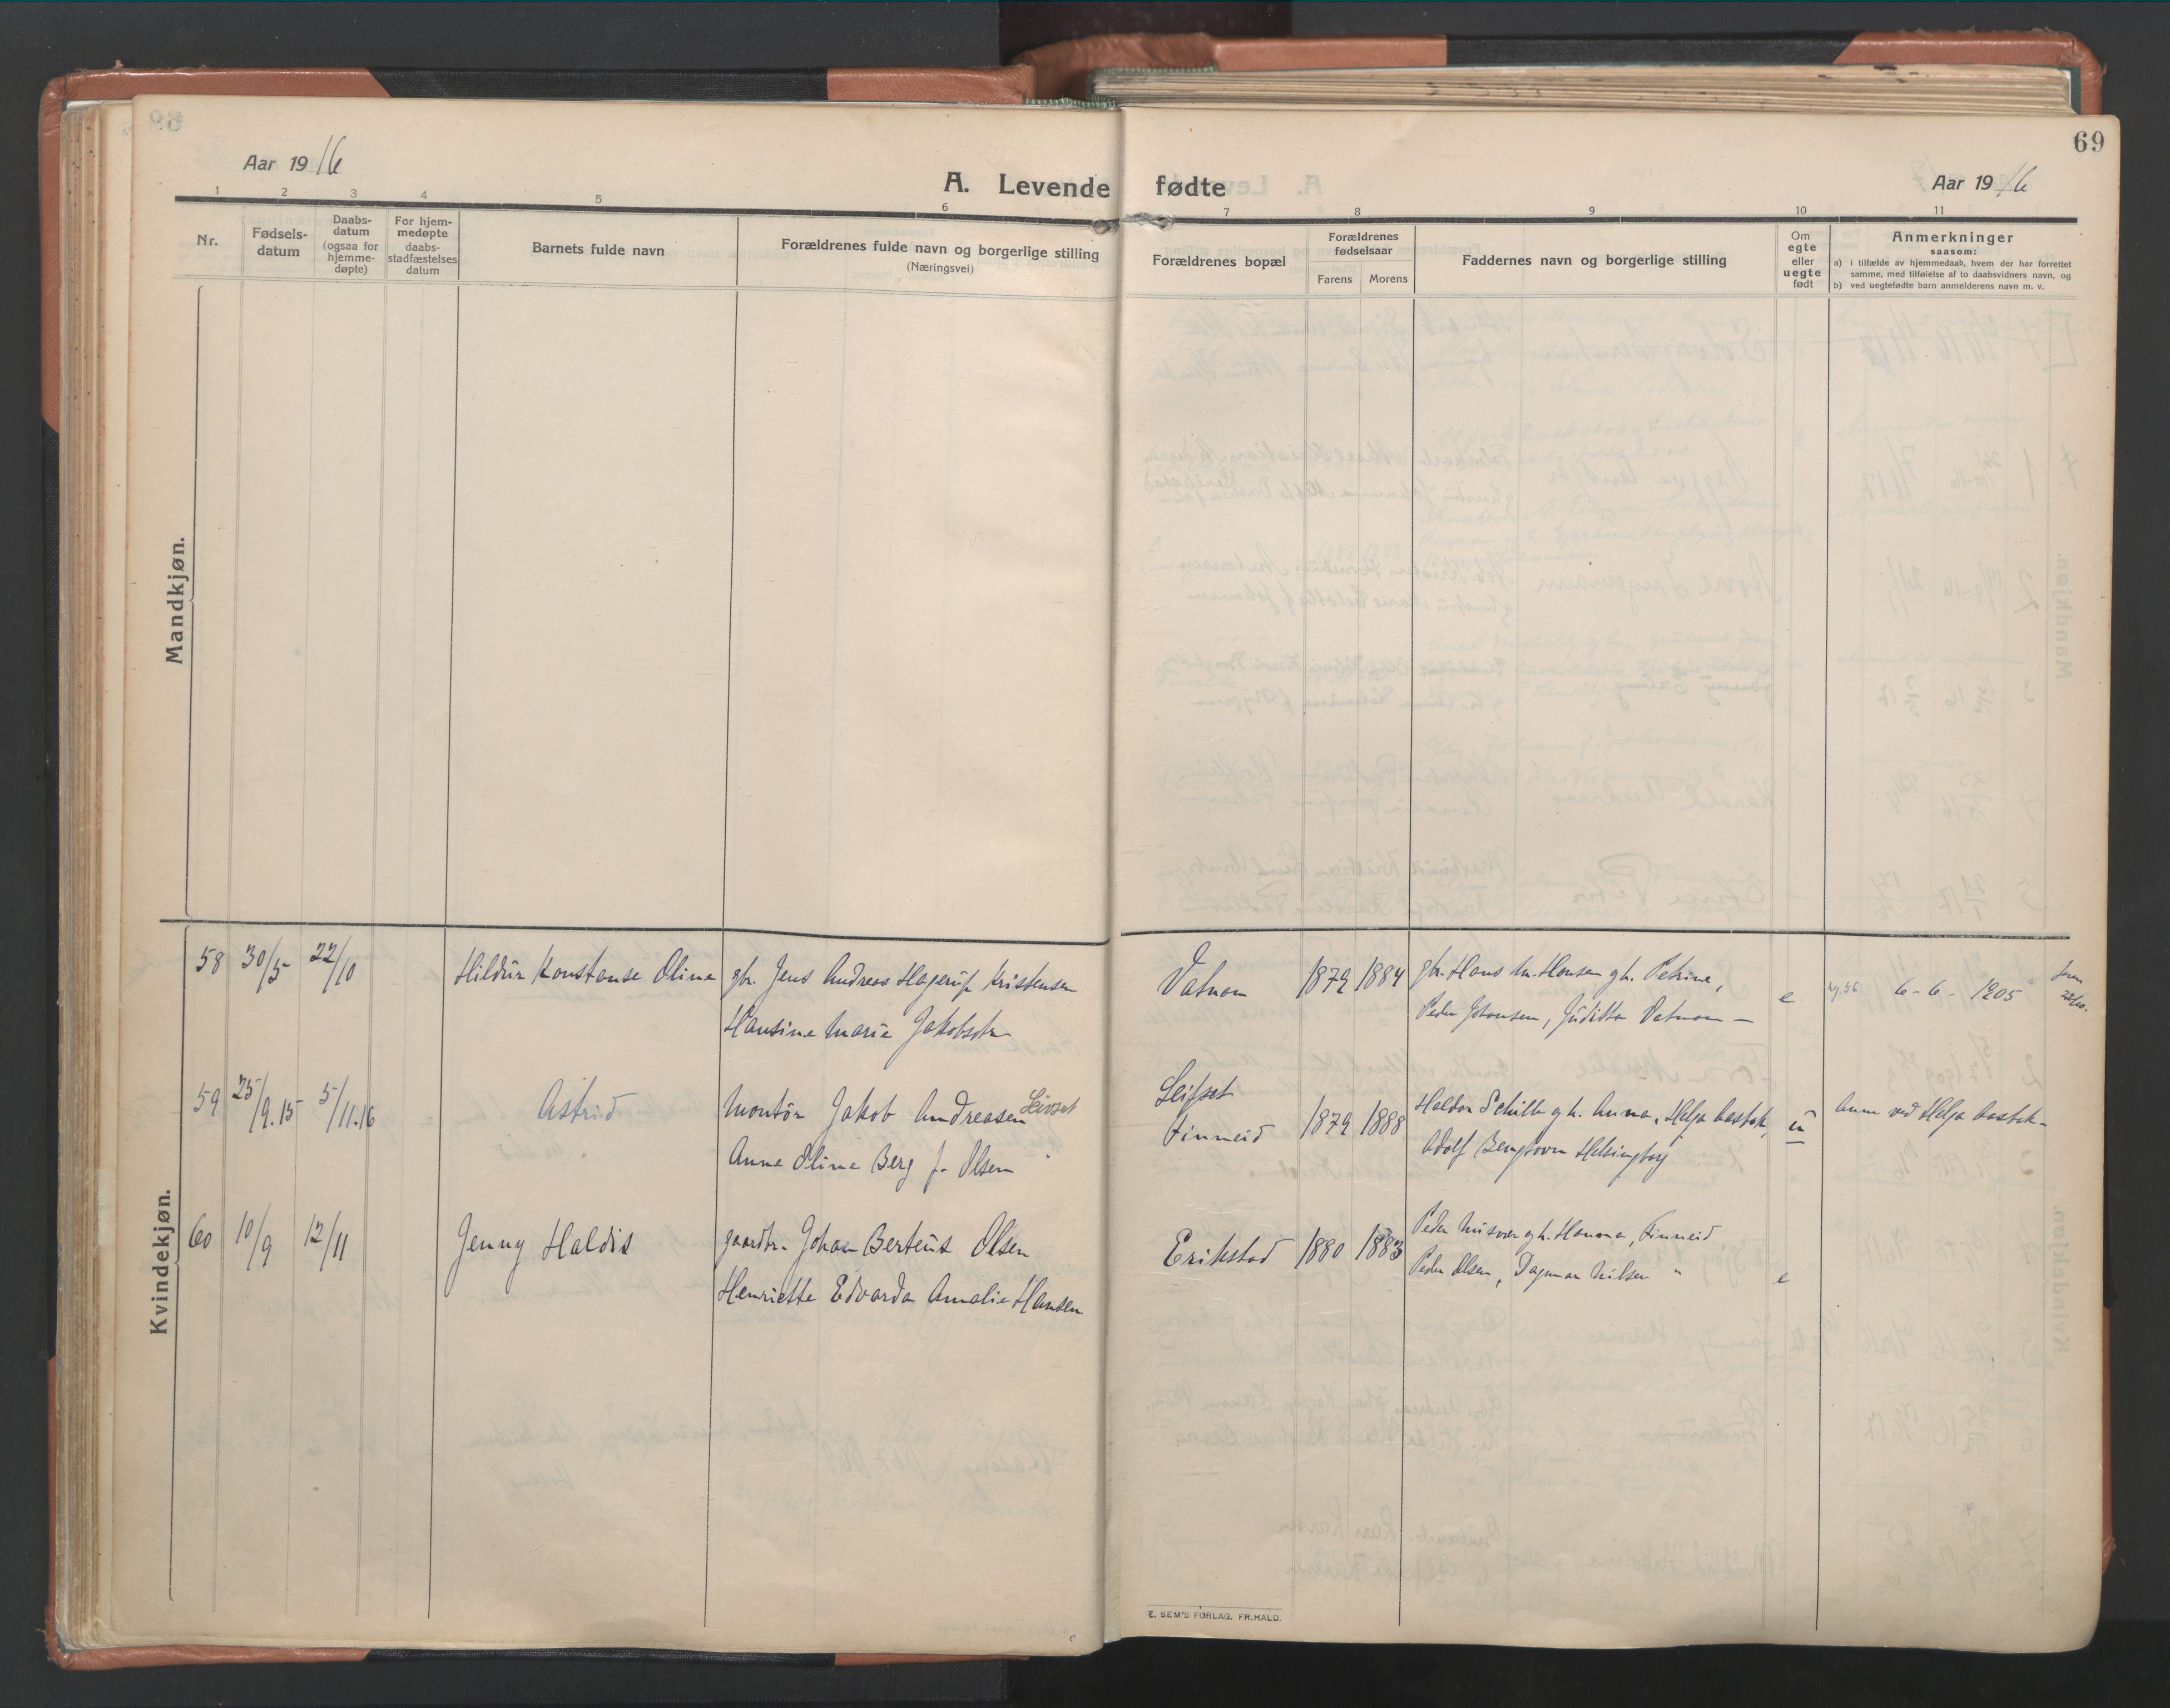 69
Aar 1916
A. Levende fødte
Aar 1916
1 2 3 4 5 6 7 8 9 10 11
Nr.
Fødsels-
datum
Daabs-
datum
(ogsaa for
hjemme-
døpte)
For hjem-
medøpte
daabs-
stadfæstelses
datum
Barnets fulde navn
Forældrenes fulde navn og borgerlige stilling
(Næringsvei)
Forældrenes bopæl
Forældrenes
fødselsaar
Farens Morens
Faddernes navn og borgerlige stilling
Om
egte
eller
uegte
født
Anmerkninger
saasom:
a) i tilfælde av hjemmedaab, hvem der har forrettet
samme, med tilføielse af to daabsvidners navn, og
b) ved uegtefødte barn anmelderens navn m. v.
Mandkjøn.
Kvindekjøn.
58 30/5 22/10 Hildur Konstanse Oline gbr. Jens Andreas Hagerup Kristensen Vatnan 1879 1884 gbr. Hans M. Hansen g h. Petrine, e 6-6-1905
Hansine Marie Jakobsdtr Peder Johansen, Juditta Vatnan —
59 25/9.15 5/11.16 Astrid Montør Jakob Andreasen Leivset Leifset 1879 1888 g h. Anna, Helga u Anm ved Helga
Anne Oline Berg f. Olsen Finneid Adolf Helsingborg
60 10/9 12/11 Jenny Haldis gaardbr. Johan Berteus Olsen Erikstad 1880 1883 Peder g h. Hanna, Finneid
Henriette Edvarda Amalie Hansen Peder Olsen, Dagmar Nilsen " e
E. SEM'S FORLAG, FR.HALD.